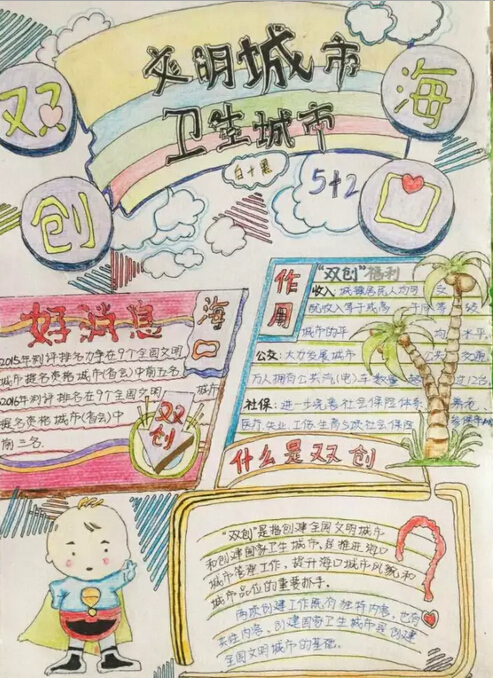 双
创
文明城市
卫生城市
海
口
白+黑
5+2
好消息
海
口
2015年测评排名力争在9个全国文明
城市提名资格城市(省会)中前五名.
2016年测评排名在9个全国文明 城市
提名资格城市(省会)中
前三名.
双
创
作
用
"双创"福利
收入: 城镇居民人均可 支
配收入等于或高 于
城市的平 均 水平.
公交: 大力发展城市 公共 交通,
万人拥有公共汽(电)车数量 12台.
社保: 进一步完善社会保险体系
医疗、失业、工伤、生育5项社会保险
什么是双创
"双创"是指创建全国文明城市
和创建国家卫生城市.是推进海口
城市管理工作,提升海口城市风貌和
城市品位的重要抓手.
两项创建工作既有独特内容,也有
共性内容,创建国家卫生城市是创建
全国文明城市的基础.